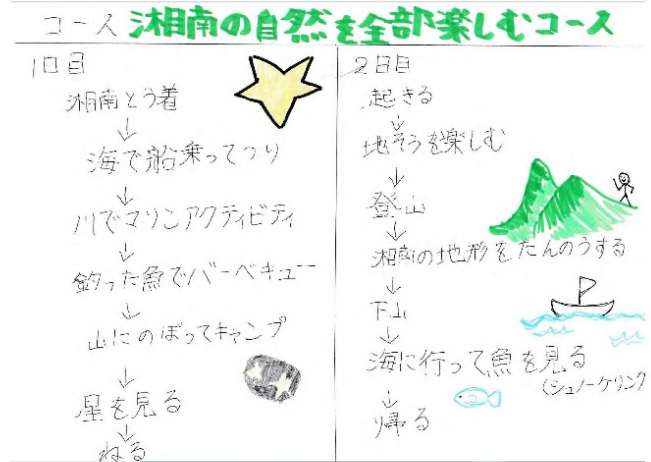 コース 湘南の自然を全部楽しむコース
1日目
湘南とう着
↓
海で船乗ってつり
↓
川でマリンアクティビティ
↓
釣った魚でバーベキュー
↓
山にのぼってキャンプ
↓
星を見る
↓
ねる
2日目
起きる
↓
地そうを楽しむ
↓
登山
↓
湘南の地形をたんのうする
↓
下山
↓
海に行って魚を見る
(シュノーケリング
↓
帰る